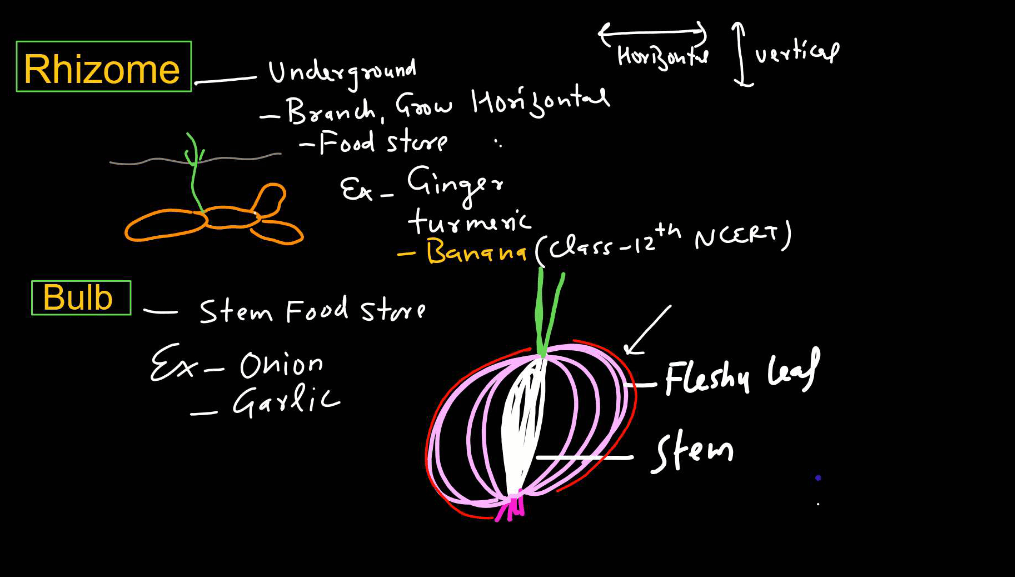 Horizontal vertical
Rhizome — Underground
- Branch, Grow Horizontal
- Food store
Ex - Ginger
turmeric
- Banana (Class-12th NCERT)
Bulb — Stem Food store
Ex - Onion
- Garlic
Fleshy leaf
Stem